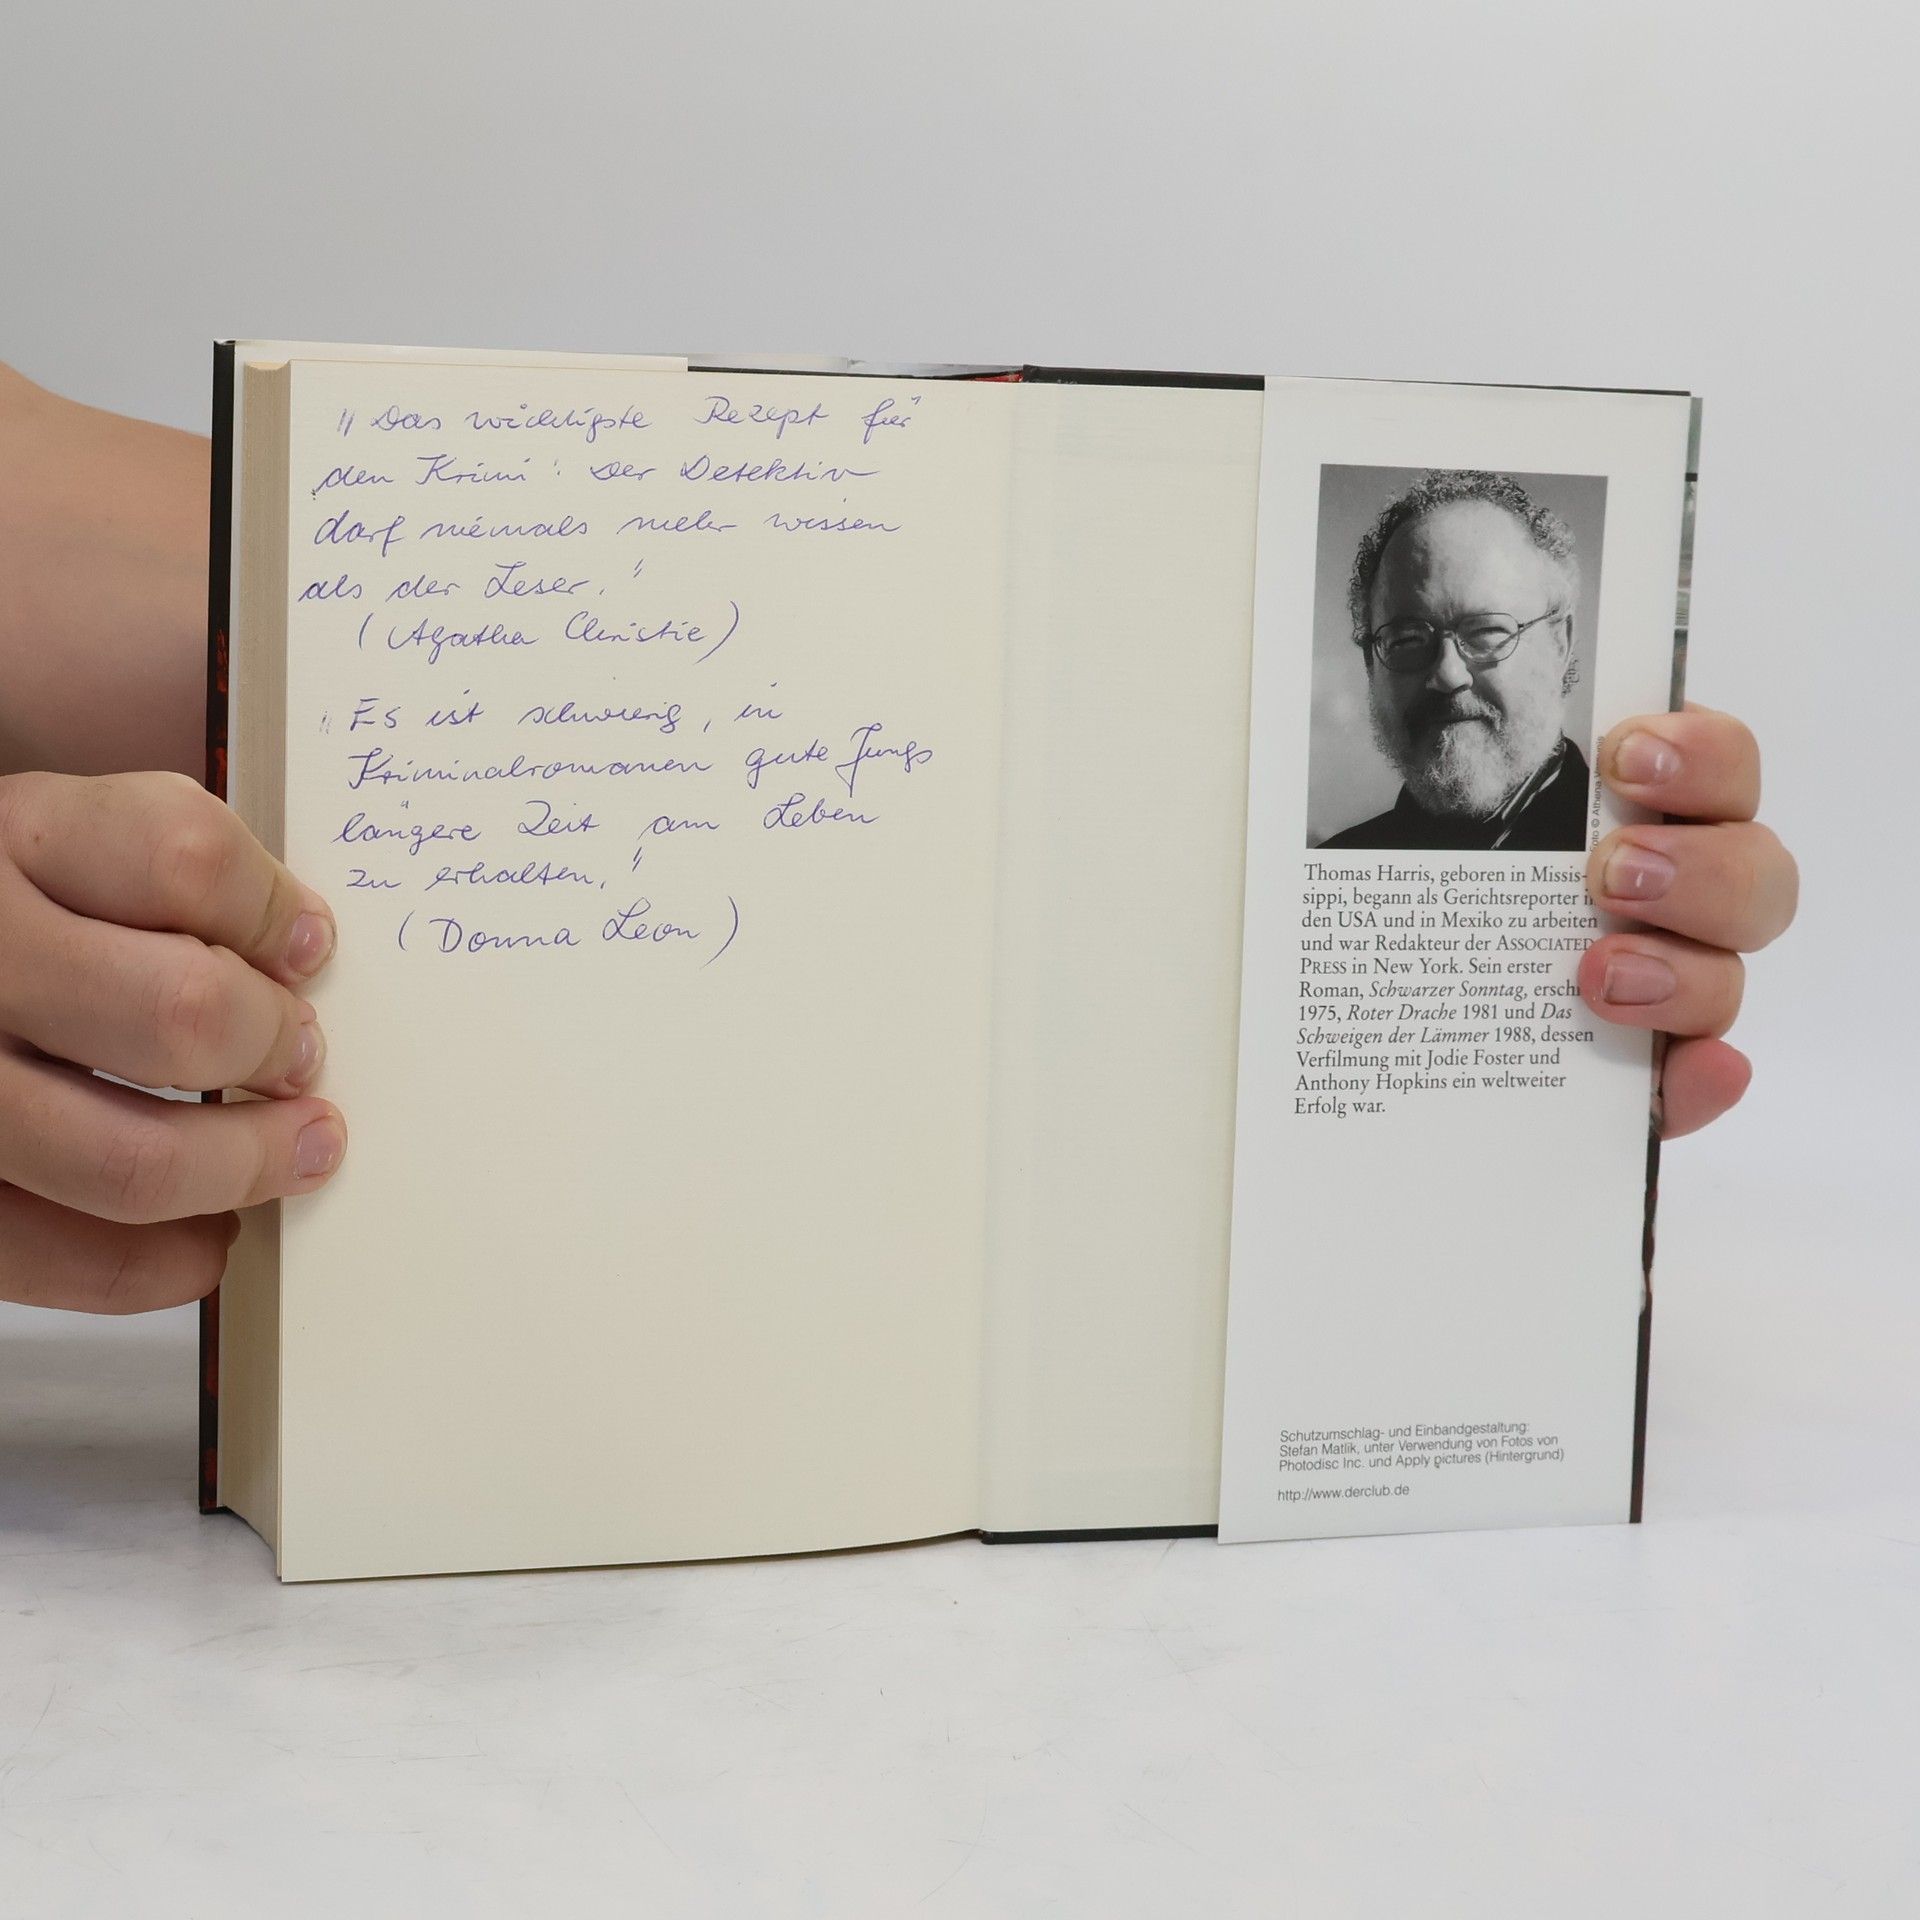 "Das wichtigste Rezept für
den Krimi: Der Detektiv
darf niemals mehr wissen
als der Leser."
(Agatha Christie)
"Es ist schwierig, in
Kriminalromanen gute Jungs
längere Zeit am Leben
zu erhalten."
(Donna Leon)
Foto © Athena
Thomas Harris, geboren in Missis-
sippi, begann als Gerichtsreporter
den USA und in Mexiko zu arbeiten
und war Redakteur der ASSOCIATED
PRESS in New York. Sein erster
Roman, Schwarzer Sonntag,
1975, Roter Drache 1981 und Das
Schweigen der Lämmer 1988, dessen
Verfilmung mit Jodie Foster und
Anthony Hopkins ein weltweiter
Erfolg war.
Schutzumschlag- und Einbandgestaltung:
Stefan Matlik, unter Verwendung von Fotos von
Photodisc Inc. und Apply pictures (Hintergrund)
http://www.derclub.de